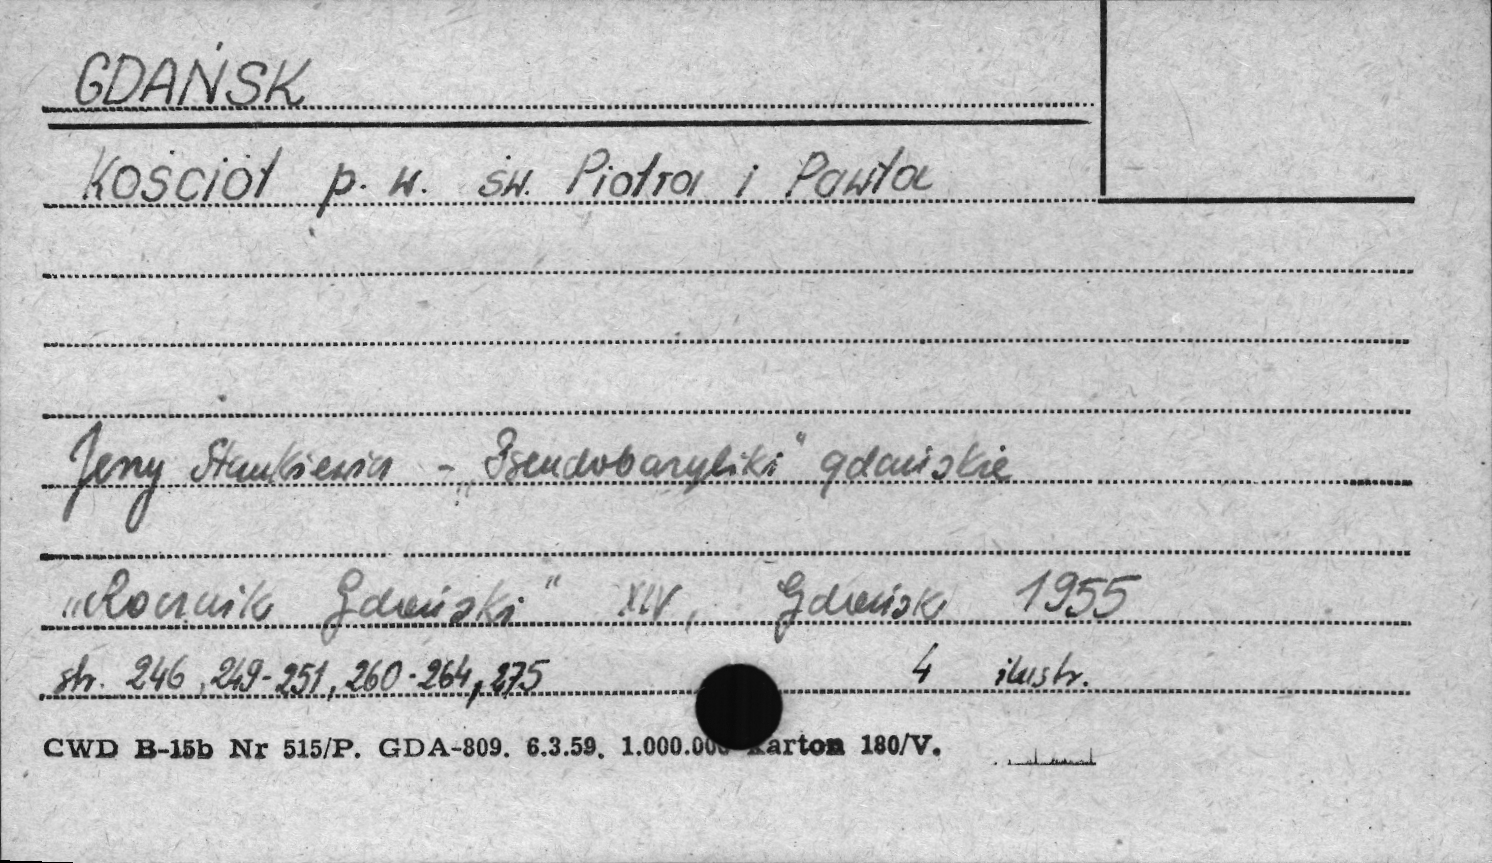 GDAŃSK
Kościół p. w. św. Piotra i Pawła
Jerzy Stankiewicz - „Pseudobazyliki" gdańskie
„Rocznik Gdański" XIV, Gdańsk 1955
str. 246, 249-251, 260-264, 275 4 ilustr.
CWD B-15b Nr 515/P. GDA-809. 6.3.59. 1.000.000 Karton 180/V.